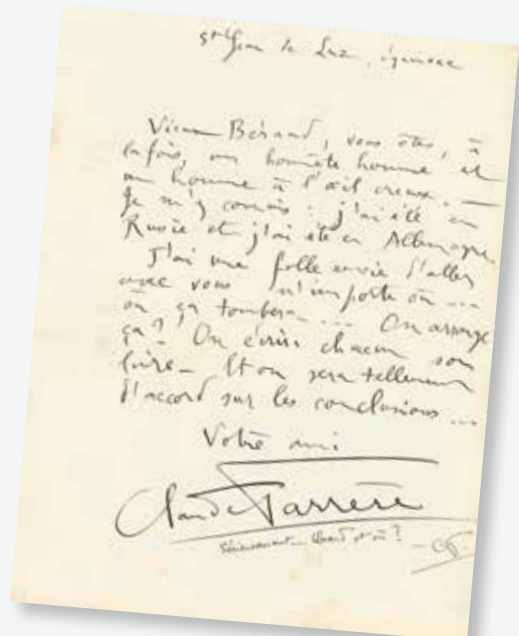 St Jean de Luz, équinoxe
Vieux Béraud, vous êtes, à
la fois, un honnête homme et
un homme à l'œil creux. —
Je m'y connais : j'ai été en
Russie et j'ai été en Allemagne.
J'ai une folle envie d'aller
avec vous n'importe où ...
où ça tombera ... On arrange
ça ? On écrira chacun son
livre — Et on sera tellement
d'accord sur les conclusions ...
Votre ami
Claude Farrère
Sérieusement — Quand et où ? — CF